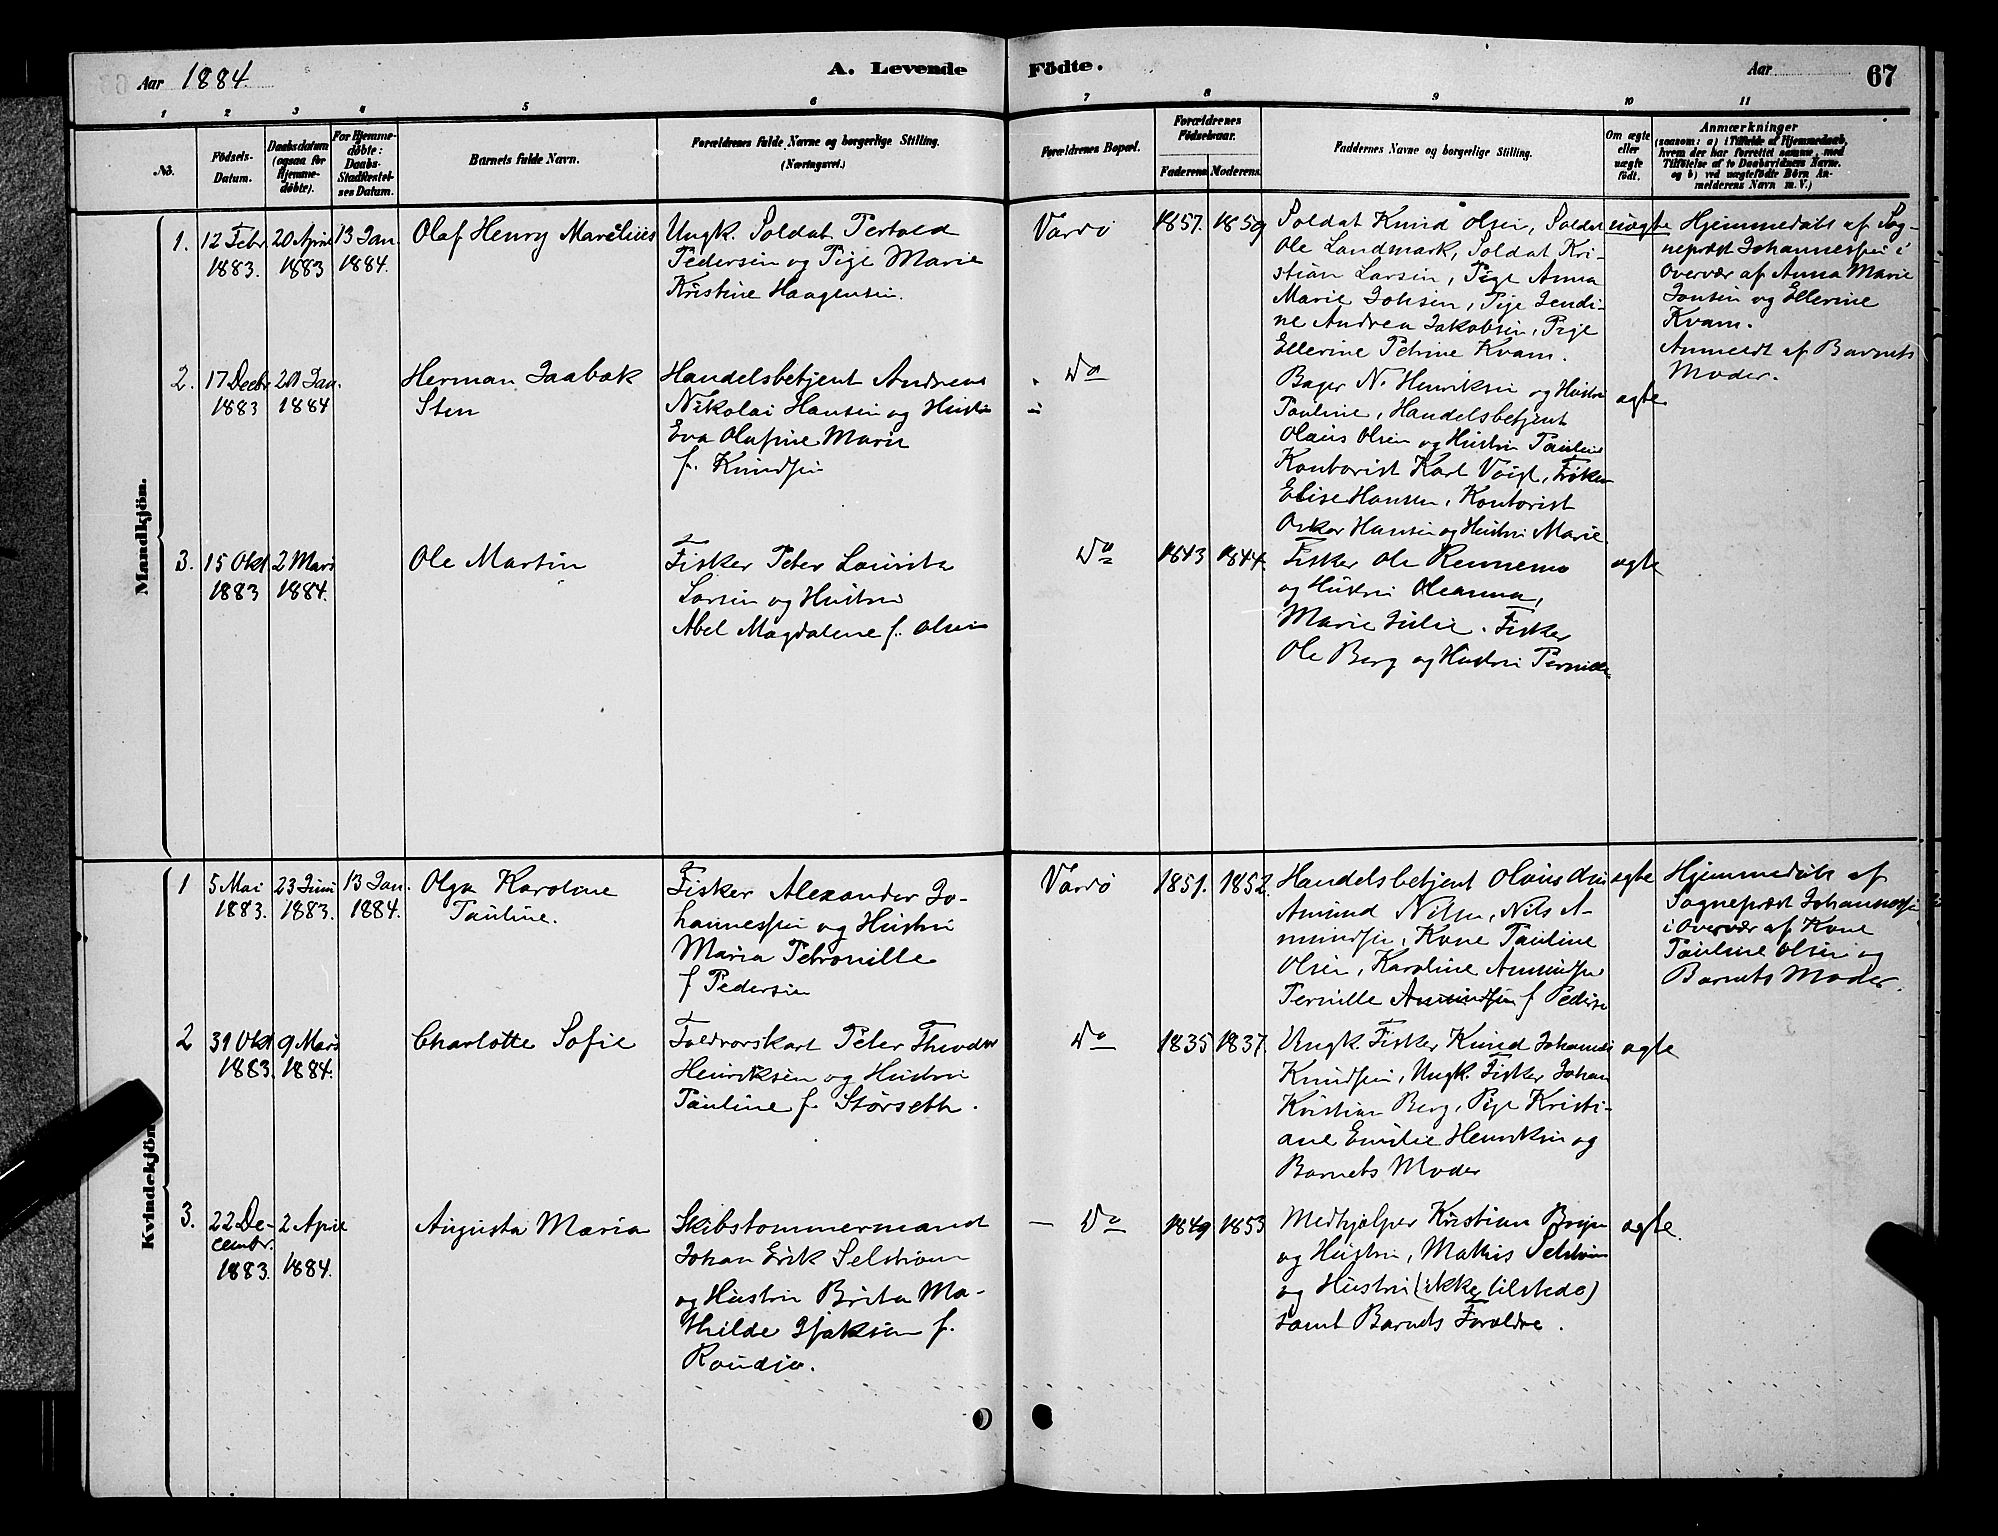 Aar 1884.
A. Levende
Fødte.
Aar
67
1 2 3 4 5 6
7 8 9 10 11
No.
Fødsels-
Datum.
Daabsdatum
(ogsaa for
Hjemme-
døbte).
For Hjemme-
døbte:
Daabs-
Stadfæstel-
ses Datum.
Barnets fulde Navn.
Forældrenes fulde Navne og borgerlige Stilling.
(Næringsvei.)
Forældrenes Bopæl.
Forældrenes
Fødselsaar.
Faderens Moderens.
Faddernes Navne og borgerlige Stilling.
Om ægte
eller
uægte
født.
Anmærkninger
(saasom: a) i Tilfælde af Hjemmedaab,
hvem der har forrettet samme, med
Tilføielse af to Daabsvidners Navne.
og b) ved uægtefødte Børn An-
melderens Navn m. V.)
Mandkjön.
1.
12 Febr
1883.
20 April
1883
13 Jan.
1884.
Olaf Henry Marelius
Ungk. Soldat Pertold
Pedersen og Pige Marie
Kristine Haagensen.
Vardö
1857.
1859
Soldat Knud Olsen, Soldat
Ole Landmark, Soldat Kri-
stian Larsen, Pige Anna
Marie Johsen, Pige Jendi-
ne Andrea Jakobsen, Pige
Ellerine Petrine Kvam.
uægte
Hjemmedøbt af Sog-
nepræst Johannessen i
Overvær af Anna Marie
Jonsen og Ellerine
Kvam.
Anmeldt af Barnets
Moder.
2.
17 Decbr
1883
20 Jan.
1884
Herman Jaabæk
Sten
Handelsbetjent Andreas
Nikolai Hansen og Hustru
Eva Olufine Marie
f. Knudsen
Do
Bager N. Henriksen og Hustru
Pauline, Handelsbetjent
Olaus Olsen og Hustru Pauline
Kontorist Karl Voigt, Frøken
Elise Hansen, Kontorist
Oskar Hansen og Hustru Marie.
ægte
3.
15 Okt
1883
2 Mars
1884.
Ole Martin
Fisker Peter Laurits
Larsen og Hustru
Abel Magdalene f. Olsen
Do
1843
1844.
Fisker Ole Rennemo
og Hustru Oleanna,
Marie Julie. Fisker
Ole Berg og Hustru Pernille
ægte
Kvindekjön.
1
5 Mai
1883.
23 Juni
1883.
13 Jan.
1884.
Olga Karoline
Pauline.
Fisker Alexander Jo-
hannessen og Hustru
Maria Petronille
f Pedersen
Vardö
1851.
1852.
Handelsbetjent Olaus Olsen
Amund Nilsen, Nils A-
mundsen, Kone Pauline
Olsen, Karoline Amundsen
Pernille Amundsen f Pedersen
ægte
Hjemmedøbt af
Sognepræst Johannessen
i Overvær af Kone
Pauline Olsen og
Barnets Moder.
2
31 Okt
1883.
9 Mars
1884.
Charlotte Sofie
Toldvorskarl Peter Theodor
Henriksen og Hustru
Pauline f. Størseth.
Do
1835
1837.
Ungk. Fisker Knud Johannes
Knudsen, Ungk. Fisker Johan
Kristian Berg, Pige Kristi-
ane Emilie Henriksen og
Barnets Moder
ægte
3.
22 De-
cembr.
1883.
2 April
1884.
Augusta Maria
Skibstømmermand
Johan Erik Selström
og Hustru Brita Ma-
thilde Isaksen f.
Do
1849
1853
Medhjælper Kristian
og Hustru, Mathis Selström
og Hustru (ikke tilstede)
samt Barnets Forældre.
ægte.